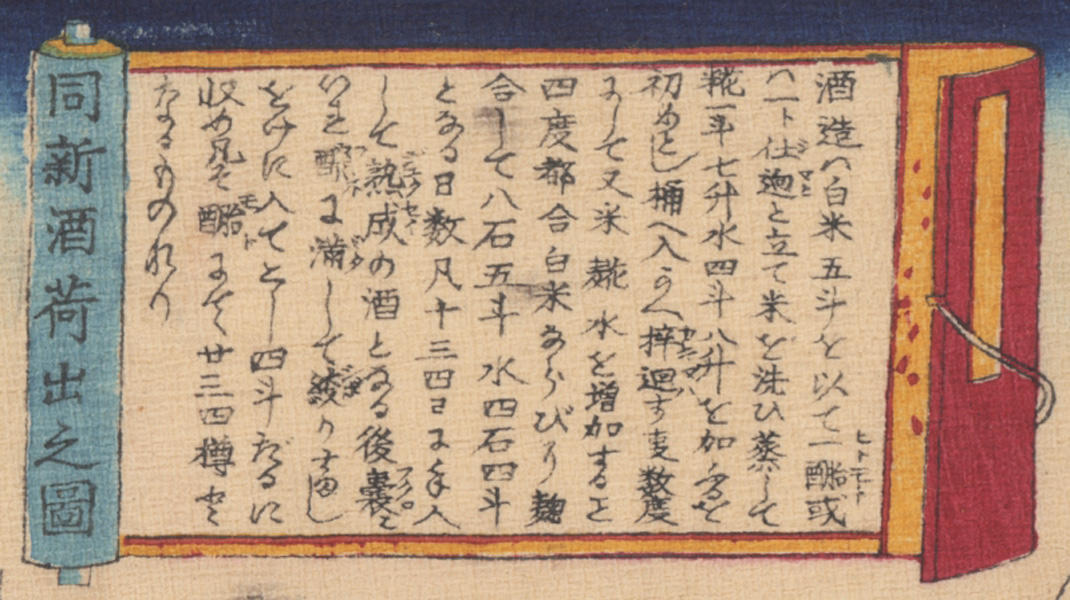 酒造ハ白米五斗を以て一酛或
ハ一ト仕廻と立て米を洗ひ蒸して
糀一斗七升水四斗八升を加ふるを
初めとし桶へ入かへ拌廻す事数度
にして又米糀水を増加すること
四度都合白米ならびに麹
合して八石五斗水四石四斗
となる日数凡十三四日にて
して熟成の酒となる後嚢に
いれ醡に満して絞りすまし
をけに入て四斗だるに
収め凡そ酛にて廿三四樽
なるものなり
同新酒荷出之圖